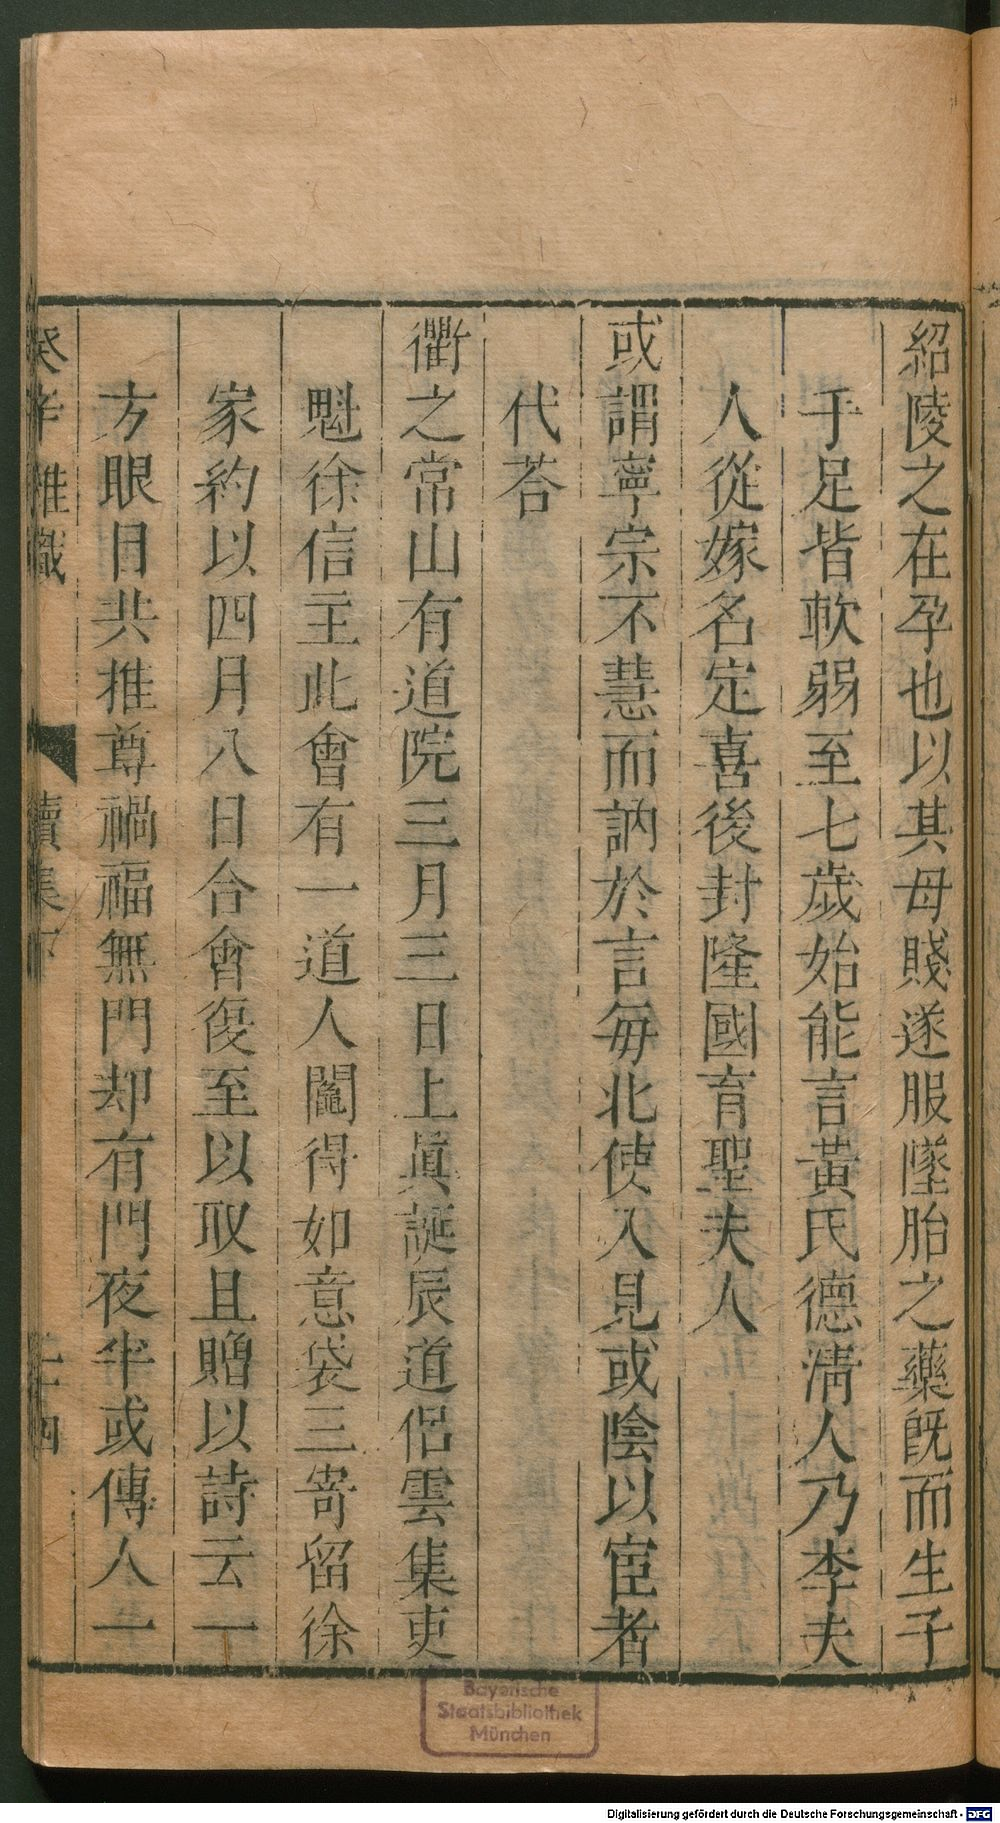 紹陵之在孕也以其母賤遂服墜胎之藥旣而生子
手足皆軟弱至七歲始能言黃氏德淸人乃李夫
人從嫁名定喜後封隆國育聖夫人
或謂寧宗不慧而訥於言每北使入見或陰以宦者
代荅
衢之常山有道院三月三日上眞誕辰道侶雲集吏
魁徐信主此會有一道人鬮得如意袋三寄留徐
家約以四月八日合會復至以取且贈以詩云一
方眼目共推尊禍福無門却有門夜半或傳人一
癸辛雜識 續集下 二十四
Bayerische
Staatsbibliothek
München
Digitalisierung gefördert durch die Deutsche Forschungsgemeinschaft - DFG